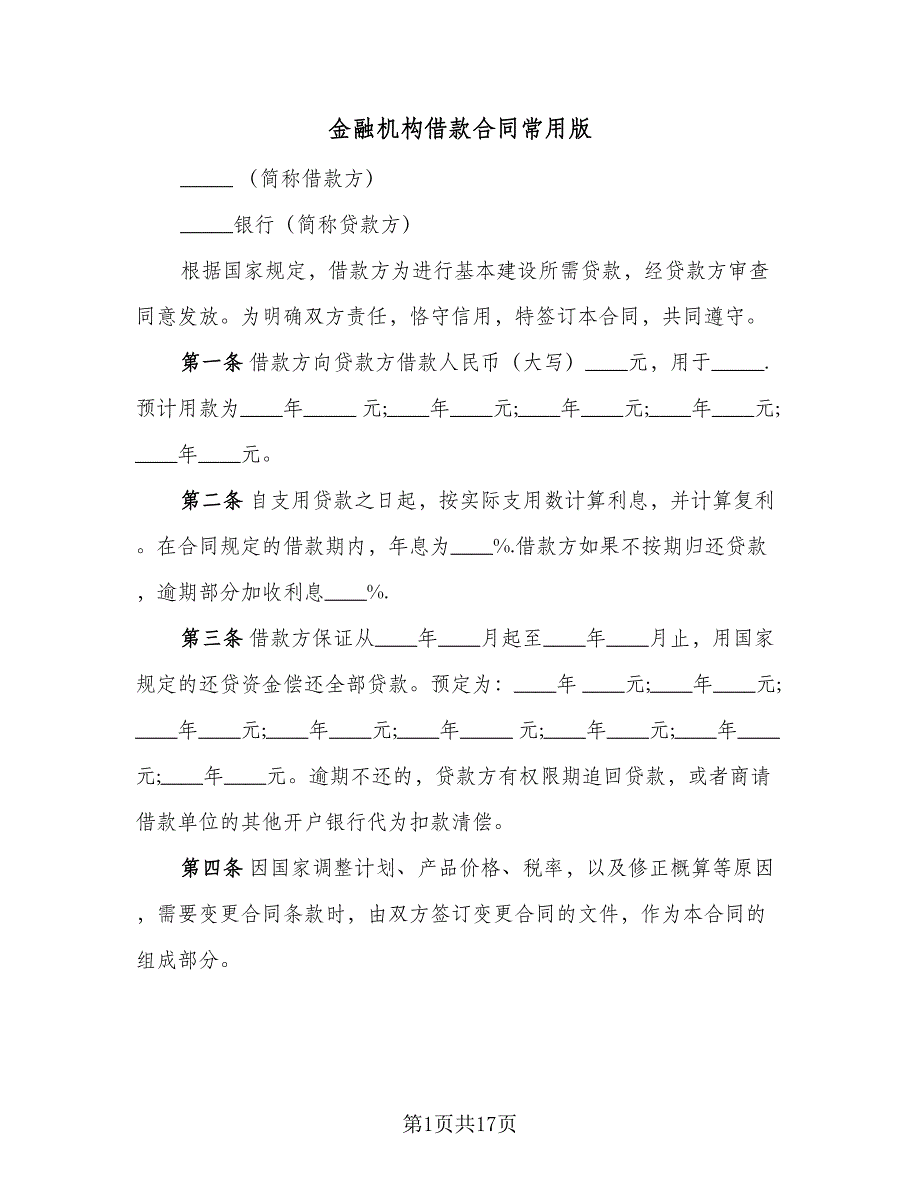 金融机构借款合同常用版
_____ （简称借款方）
_____银行（简称贷款方）
根据国家规定，借款方为进行基本建设所需贷款，经贷款方审查
同意发放。为明确双方责任，恪守信用，特签订本合同，共同遵守。
第一条 借款方向贷款方借款人民币（大写）____元，用于_____.
预计用款为____年_____ 元;____年____元;____年____元;____年____元;
____年____元。
第二条 自支用贷款之日起，按实际支用数计算利息，并计算复利
。在合同规定的借款期内，年息为____%.借款方如果不按期归还贷款
，逾期部分加收利息____%.
第三条 借款方保证从____年____月起至____年____月止，用国家
规定的还贷资金偿还全部贷款。预定为：____年 ____元;____年____元;
____年____元;____年____元;____年_____ 元;____年____元;____年____
元;____年____元。逾期不还的，贷款方有权限期追回贷款，或者商请
借款单位的其他开户银行代为扣款清偿。
第四条 因国家调整计划、产品价格、税率，以及修正概算等原因
，需要变更合同条款时，由双方签订变更合同的文件，作为本合同的
组成部分。
第1页共17页